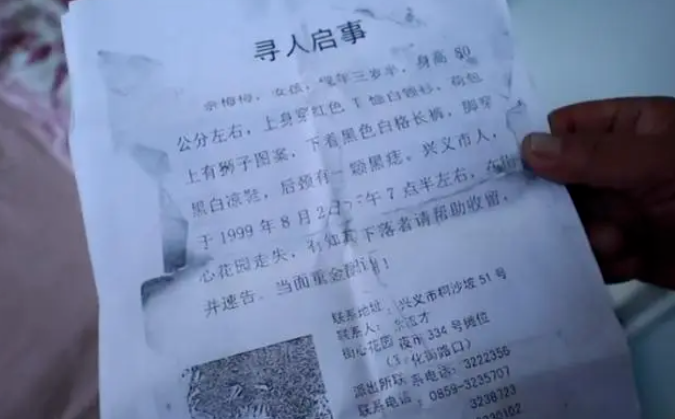 寻人启事
梅梅，女孩，现年三岁半，身高 80
公分左右，上身穿红色 T 恤白领衫，荷包
上有狮子图案，下着黑色白格长裤，脚穿
黑白凉鞋，后颈有一颗黑痣。兴义市人，
于 1999 年 8 月 2 午 7 点半左右，在
心花园走失，有知其下落者请帮助收留，
并速告。当面重金酬！
联系地址：兴义市柯沙坡 51 号
联系人：才
街心花园夜市 334 号摊位
化街路口）
派出所联系电话：3222356
联系电话：0859-3235707
3238723